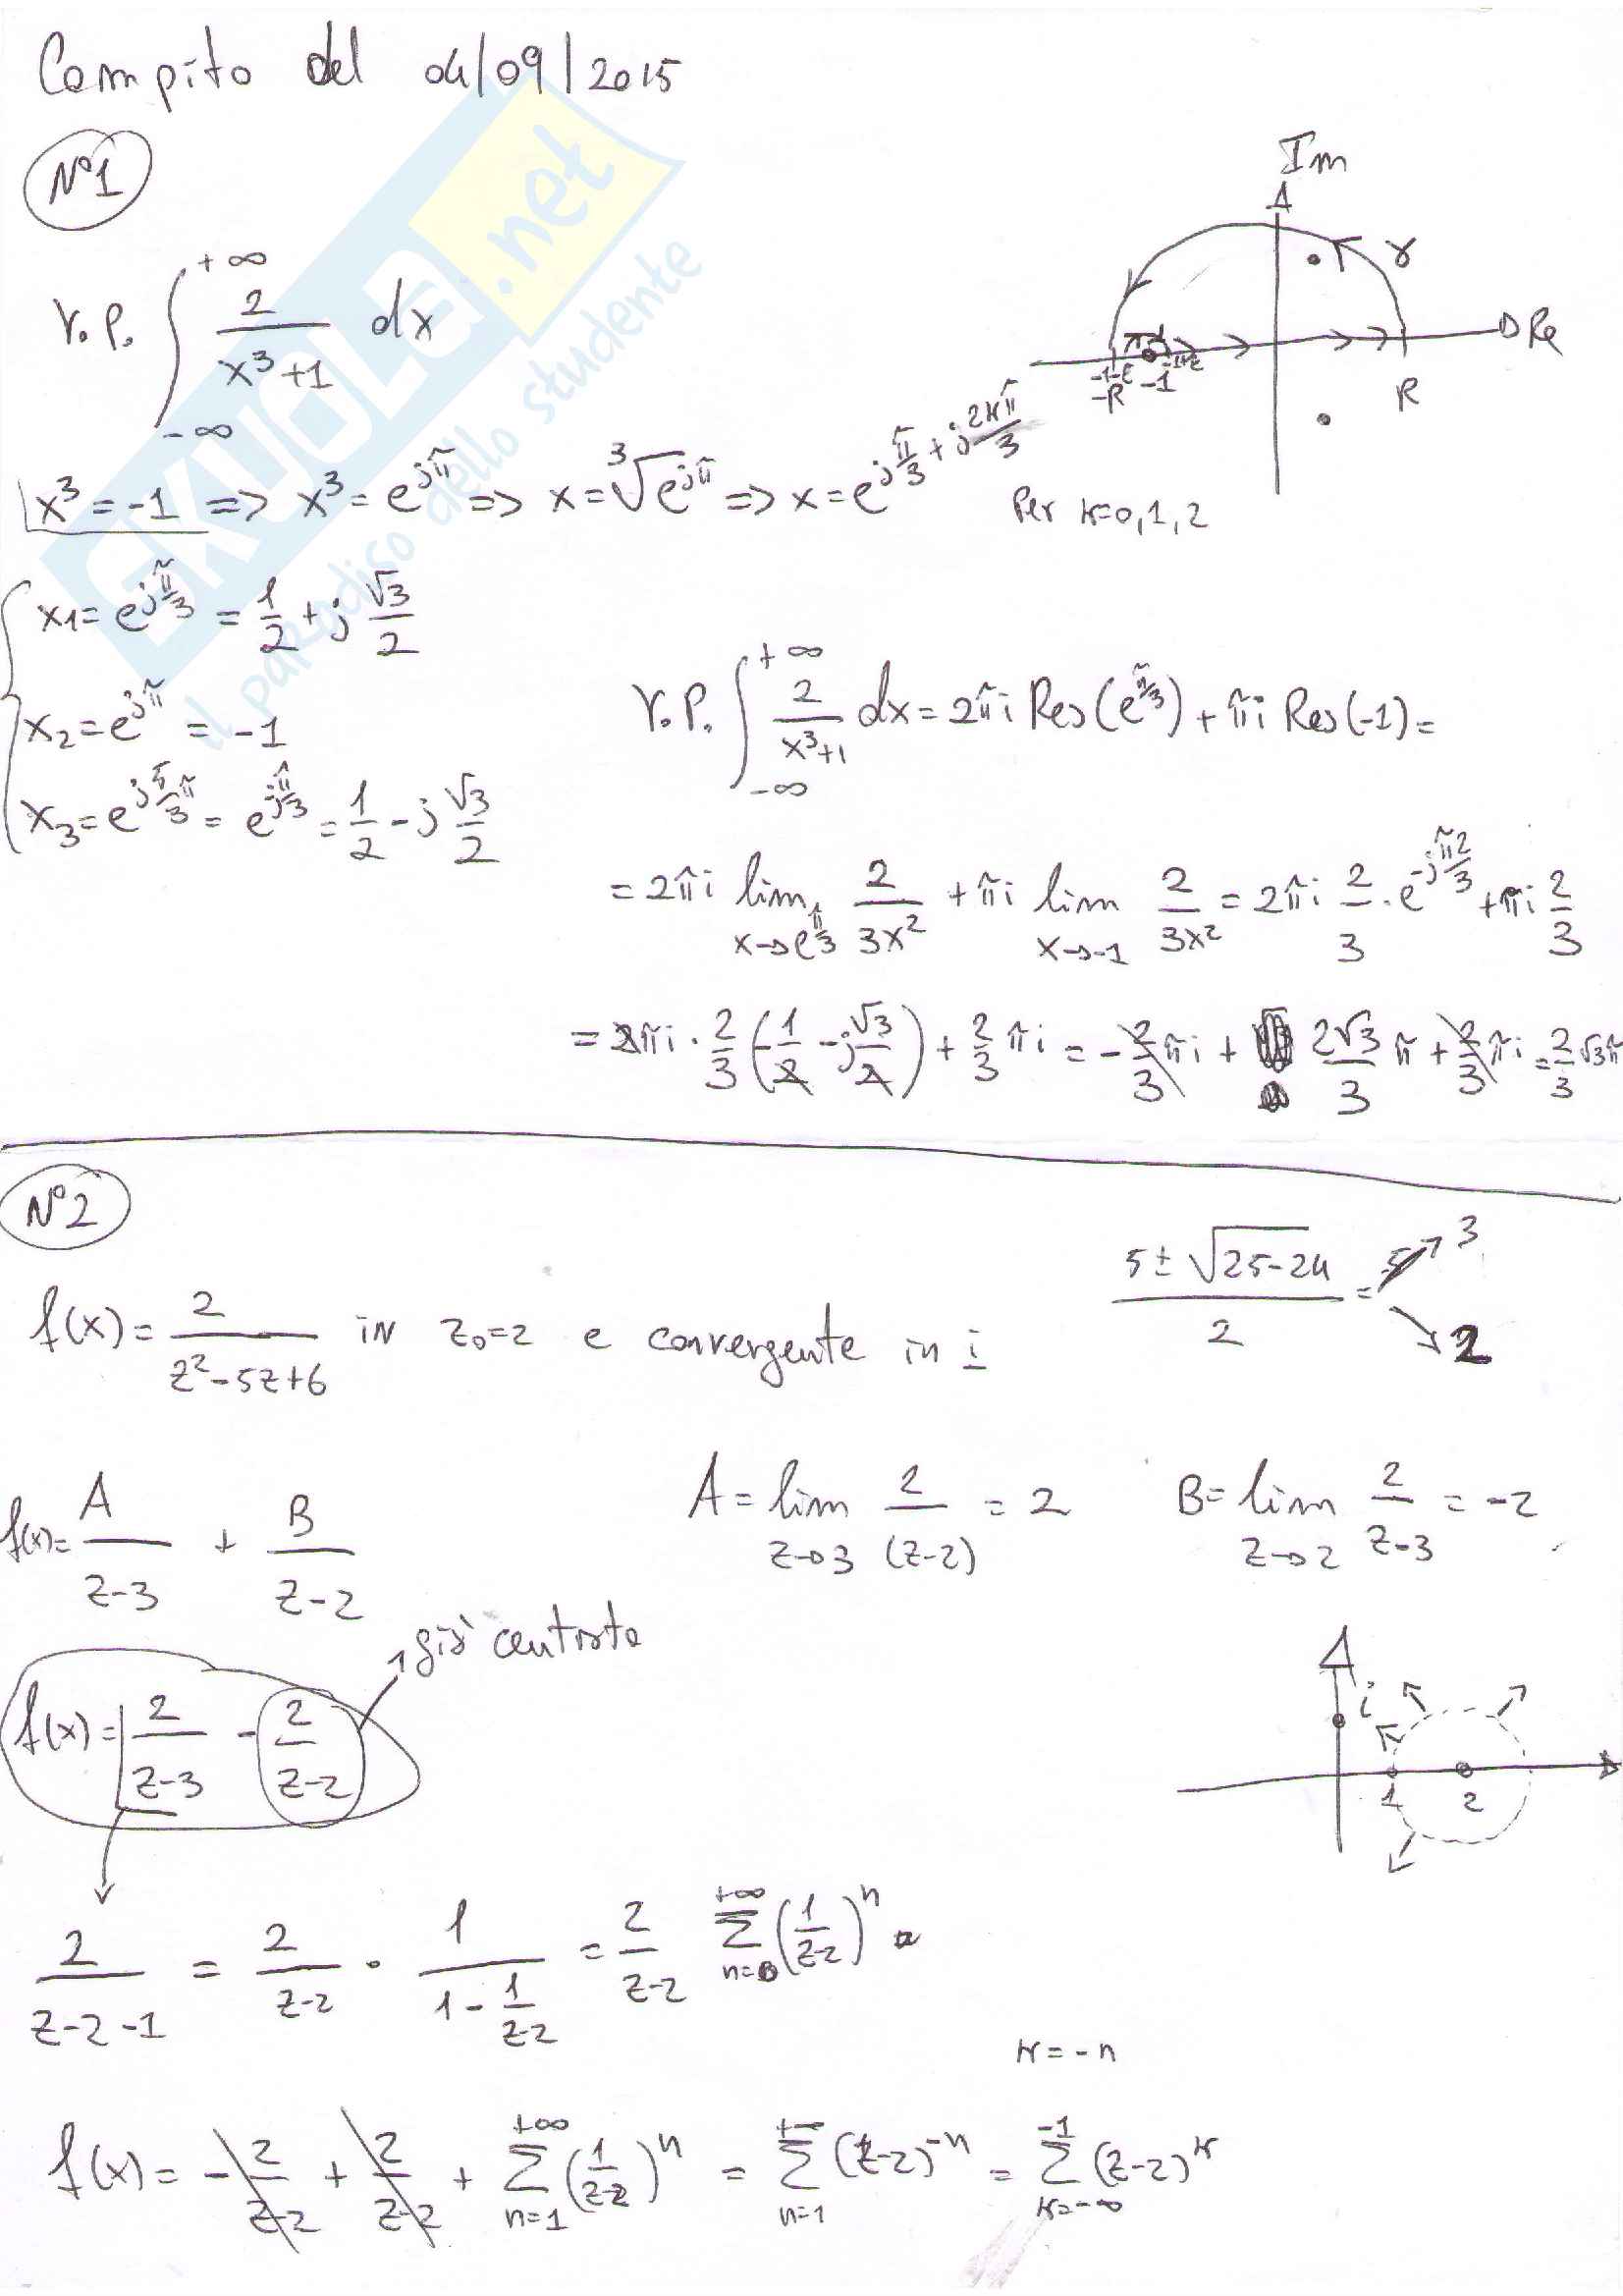 Compito del 04/09/2015
N°1
V.P. ∫_{-∞}^{+∞} 2/(x³+1) dx
Im
γ
Re
-1-ε -1 -1+ε
-R R
x³ = -1 => x³ = e^{jπ} => x = ∛(e^{jπ}) => x = e^{jπ/3 + j2kπ/3} Per k=0,1,2
x1 = e^{jπ/3} = 1/2 + j √3/2
x2 = e^{jπ} = -1
x3 = e^{j5/3π} = e^{jπ/3} = 1/2 - j √3/2
V.P. ∫_{-∞}^{+∞} 2/(x³+1) dx = 2πi Res(e^{π/3}) + πi Res(-1) =
= 2πi lim_{x→e^{π/3}} 2/(3x²) + πi lim_{x→-1} 2/(3x²) = 2πi 2/3 · e^{-jπ2/3} + πi 2/3
= 2πi · 2/3 (-1/2 - j √3/2) + 2/3 πi = -2/3 πi + 2√3/3 π + 2/3 πi = 2/3 √3π
N°2
f(x) = 2/(z²-5z+6) in z₀=2 e convergente in i
(5 ± √(25-24))/2 = 3
2
f(x) = A/(z-3) + B/(z-2)
A = lim_{z→3} 2/(z-2) = 2 B = lim_{z→2} 2/(z-3) = -2
già centrato
f(x) = 2/(z-3) - 2/(z-2)
i
1 2
2/(z-2-1) = 2/(z-2) · 1/(1 - 1/(z-2)) = 2/(z-2) ∑_{n=0}^{+∞} (1/(z-2))^n
k = -n
f(x) = -2/(z-2) + 2/(z-2) + ∑_{n=1}^{+∞} (1/(z-2))^n = ∑_{n=1}^{+∞} (z-2)^{-n} = ∑_{k=-∞}^{-1} (z-2)^k
SKUOLA.net
il paradiso dello studente